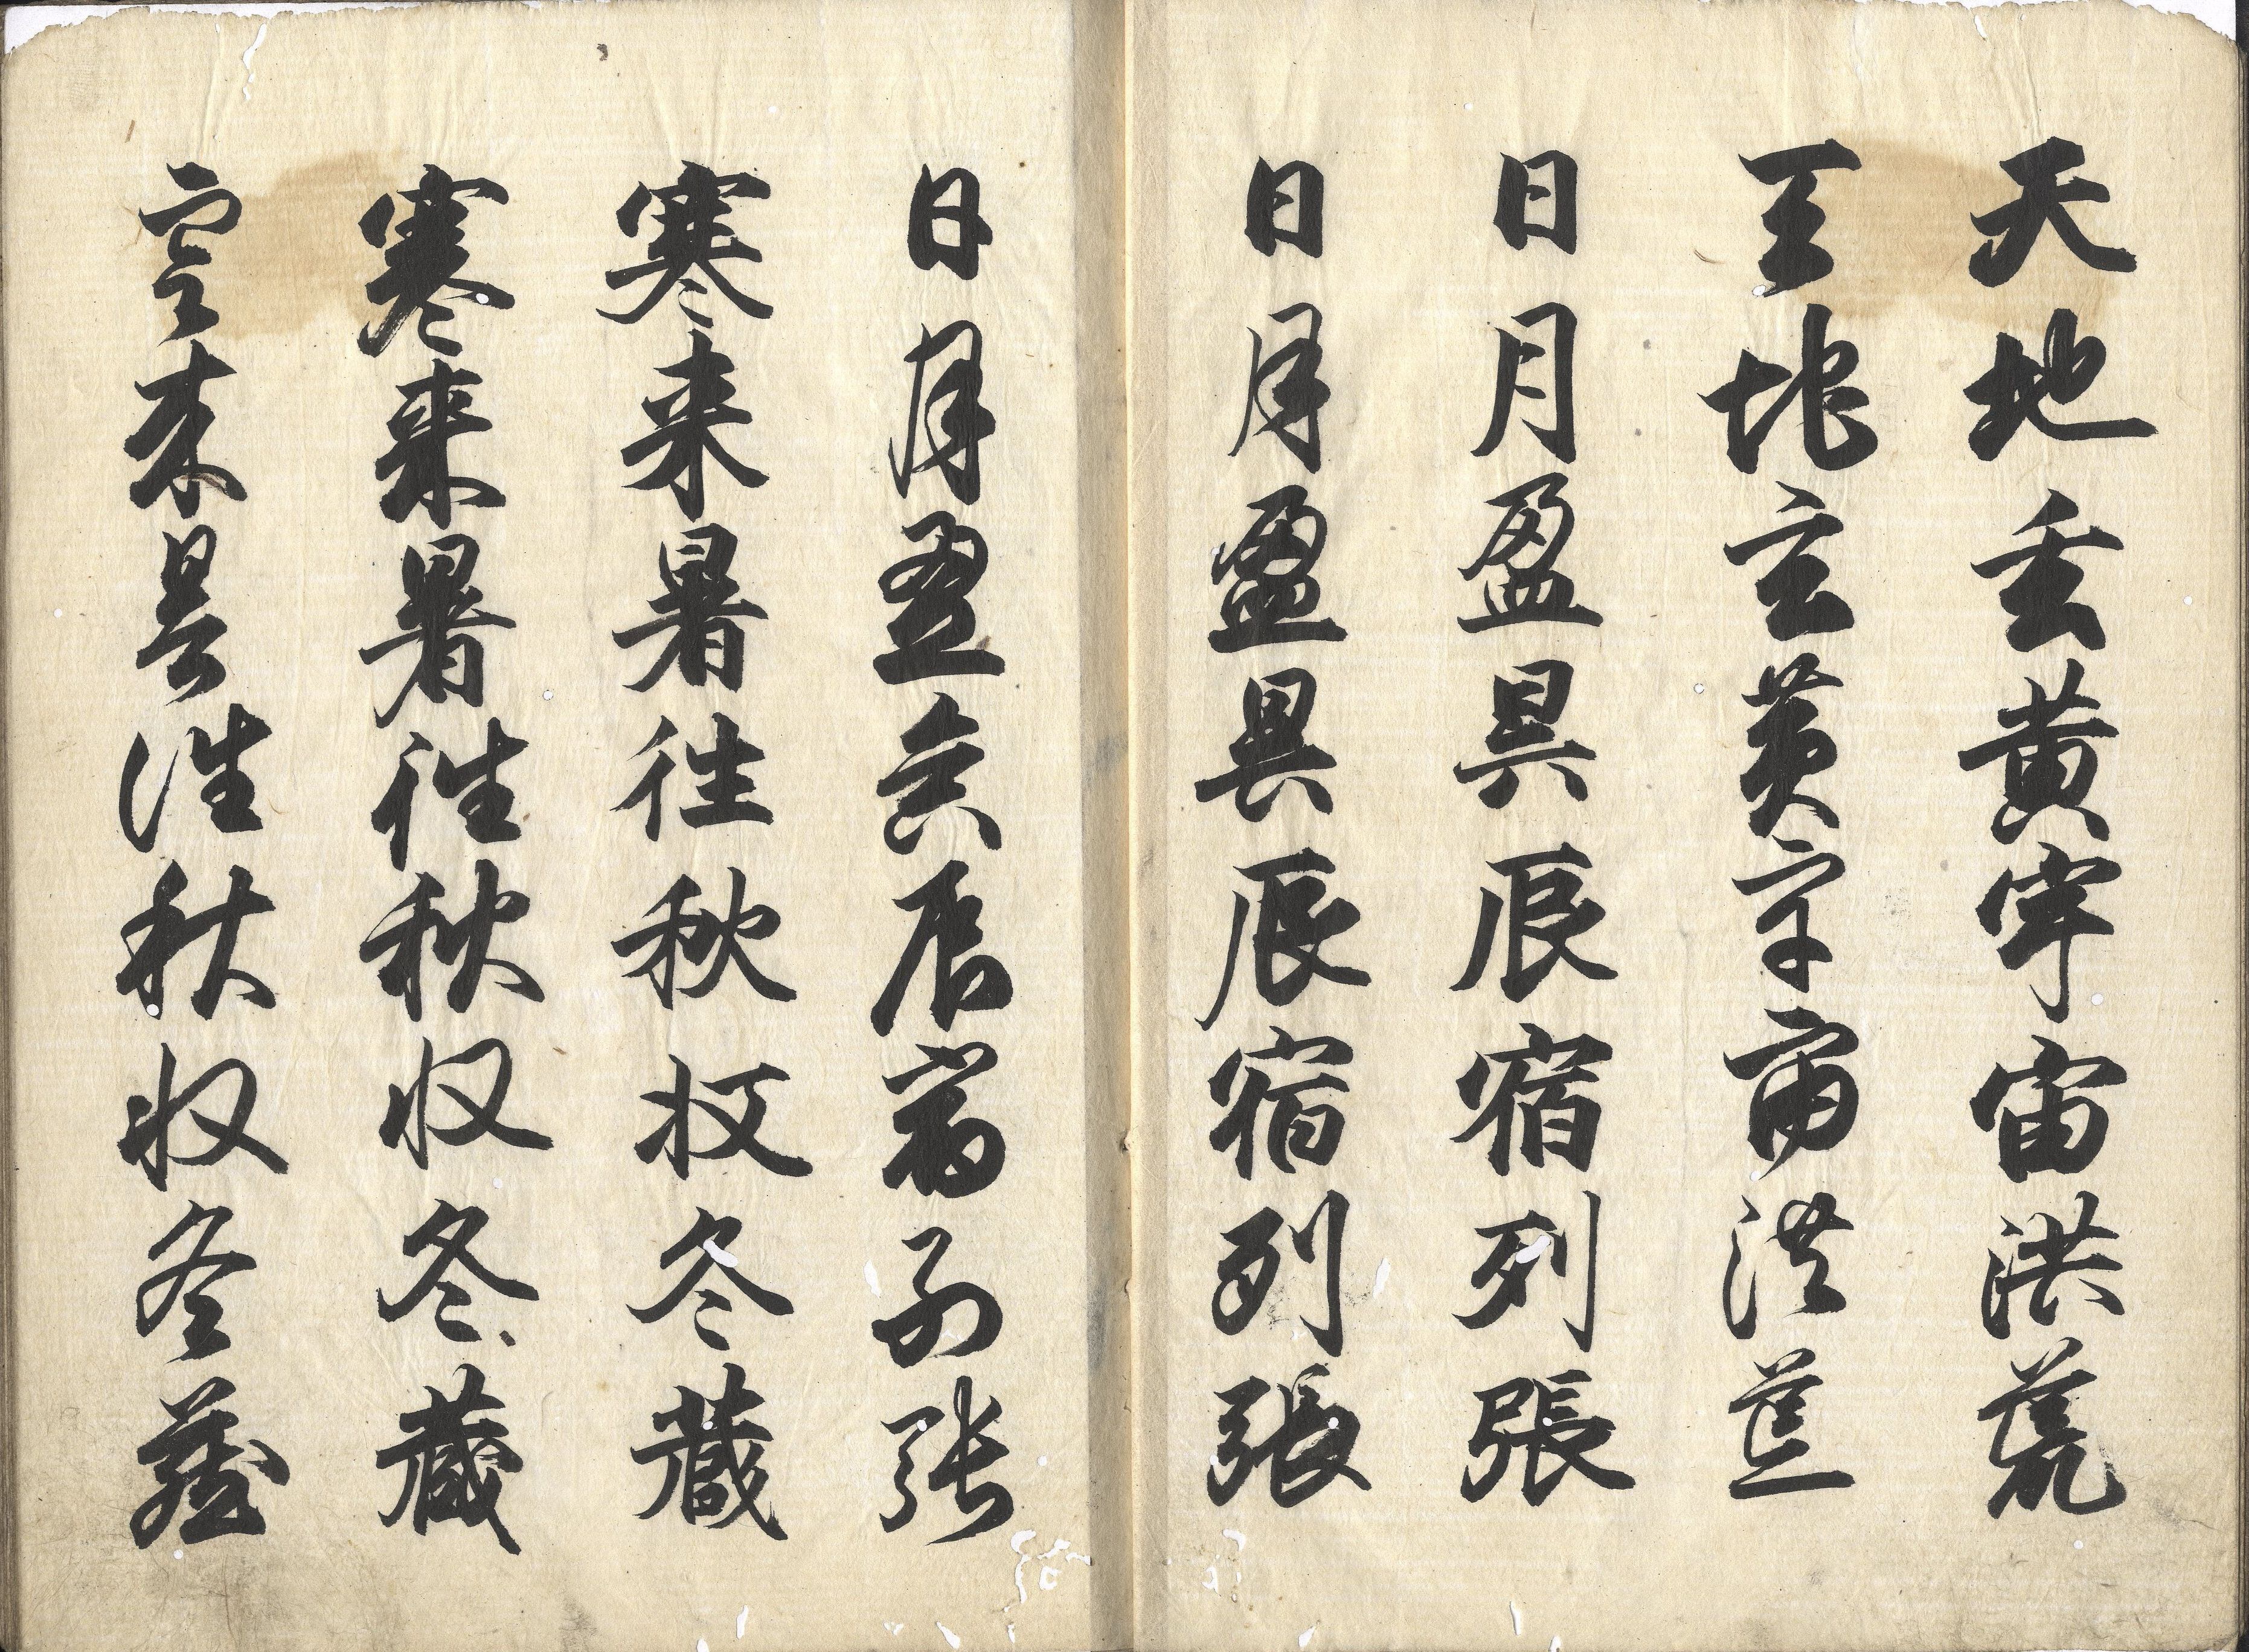 天地玄黄宇宙洪荒
天地玄黄宇宙洪荒
日月盈昃辰宿列張
日月盈昃辰宿列張
日月盈昃辰宿列張
寒来暑往秋收冬蔵
寒来暑往秋収冬蔵
寒来暑往秋収冬蔵